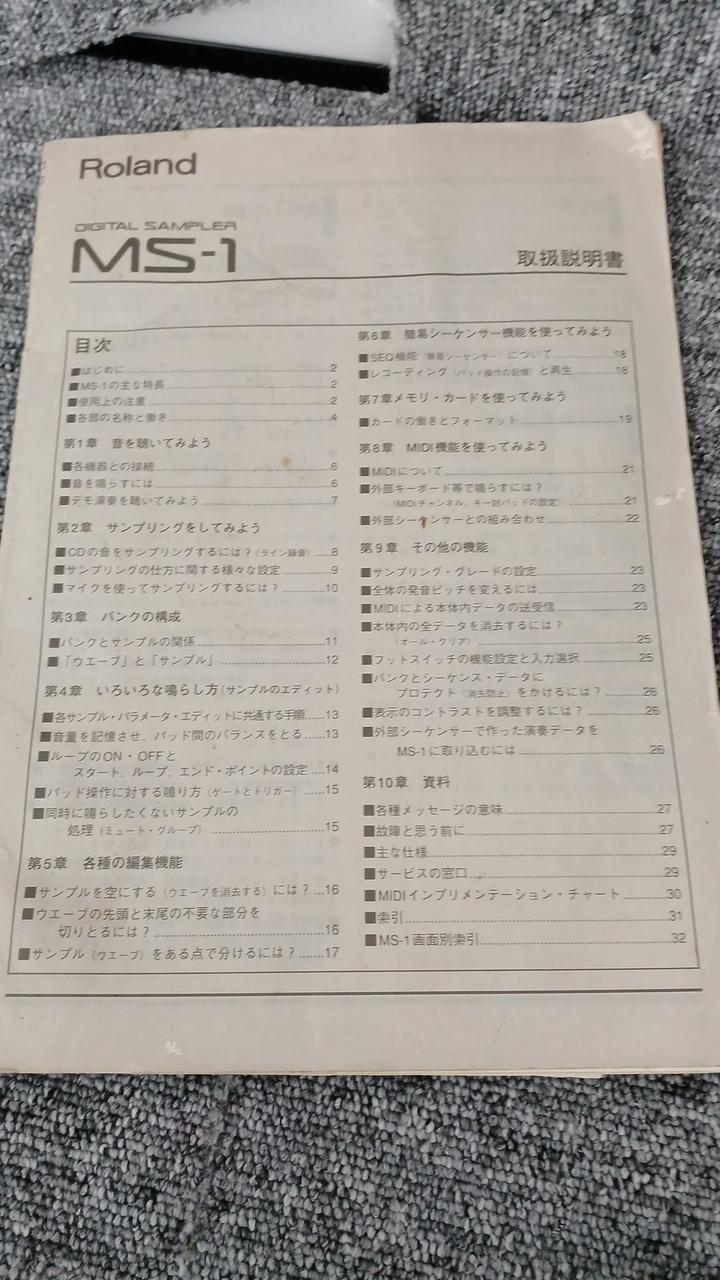 Roland
DIGITAL SAMPLER
MS-1
取扱説明書
目次
■はじめに 2
■MS-1の主な特長 2
■使用上の注意 2
■各部の名称と働き 4
第1章 音を聴いてみよう
■各機器との接続 6
■音を鳴らすには 6
■デモ演奏を聴いてみよう 7
第2章 サンプリングをしてみよう
■CDの音をサンプリングするには?(ライン録音) 8
■サンプリングの仕方に関する様々な設定 9
■マイクを使ってサンプリングするには? 10
第3章 バンクの構成
■バンクとサンプルの関係 11
■「ウエーブ」と「サンプル」 12
第4章 いろいろな鳴らし方(サンプルのエディット)
■各サンプル・パラメータ・エディットに共通する手順 13
■音量を記憶させ、パッド間のバランスをとる 13
■ループのON・OFFと
スタート、ループ、エンド・ポイントの設定 14
■パッド操作に対する鳴り方(ゲートとトリガー) 15
■同時に鳴らしたくないサンプルの
処理(ミュート・グループ) 15
第5章 各種の編集機能
■サンプルを空にする(ウエーブを消去する)には? 16
■ウエーブの先頭と末尾の不要な部分を
切りとるには? 16
■サンプル(ウエーブ)をある点で分けるには? 17
第6章 簡易シーケンサー機能を使ってみよう
■SEQ機能(簡易シーケンサー)について 18
■レコーディング(パッド操作の記憶)と再生 18
第7章メモリ・カードを使ってみよう
■カードの働きとフォーマット 19
第8章 MIDI機能を使ってみよう
■MIDIについて 21
■外部キーボード等で鳴らすには?
(MIDIチャンネル、キー対パッドの設定) 21
■外部シーケンサーとの組み合わせ 22
第9章 その他の機能
■サンプリング・グレードの設定 23
■全体の発音ピッチを変えるには 23
■MIDIによる本体内データの送受信 23
■本体内の全データを消去するには?
(オール・クリア) 25
■フットスイッチの機能設定と入力選択 25
■バンクとシーケンス・データに
プロテクト(消去防止)をかけるには? 26
■表示のコントラストを調整するには? 26
■外部シーケンサーで作った演奏データを
MS-1に取り込むには 26
第10章 資料
■各種メッセージの意味 27
■故障と思う前に 27
■主な仕様 29
■サービスの窓口 29
■MIDIインプリメンテーション・チャート 30
■索引 31
■MS-1画面別索引 32